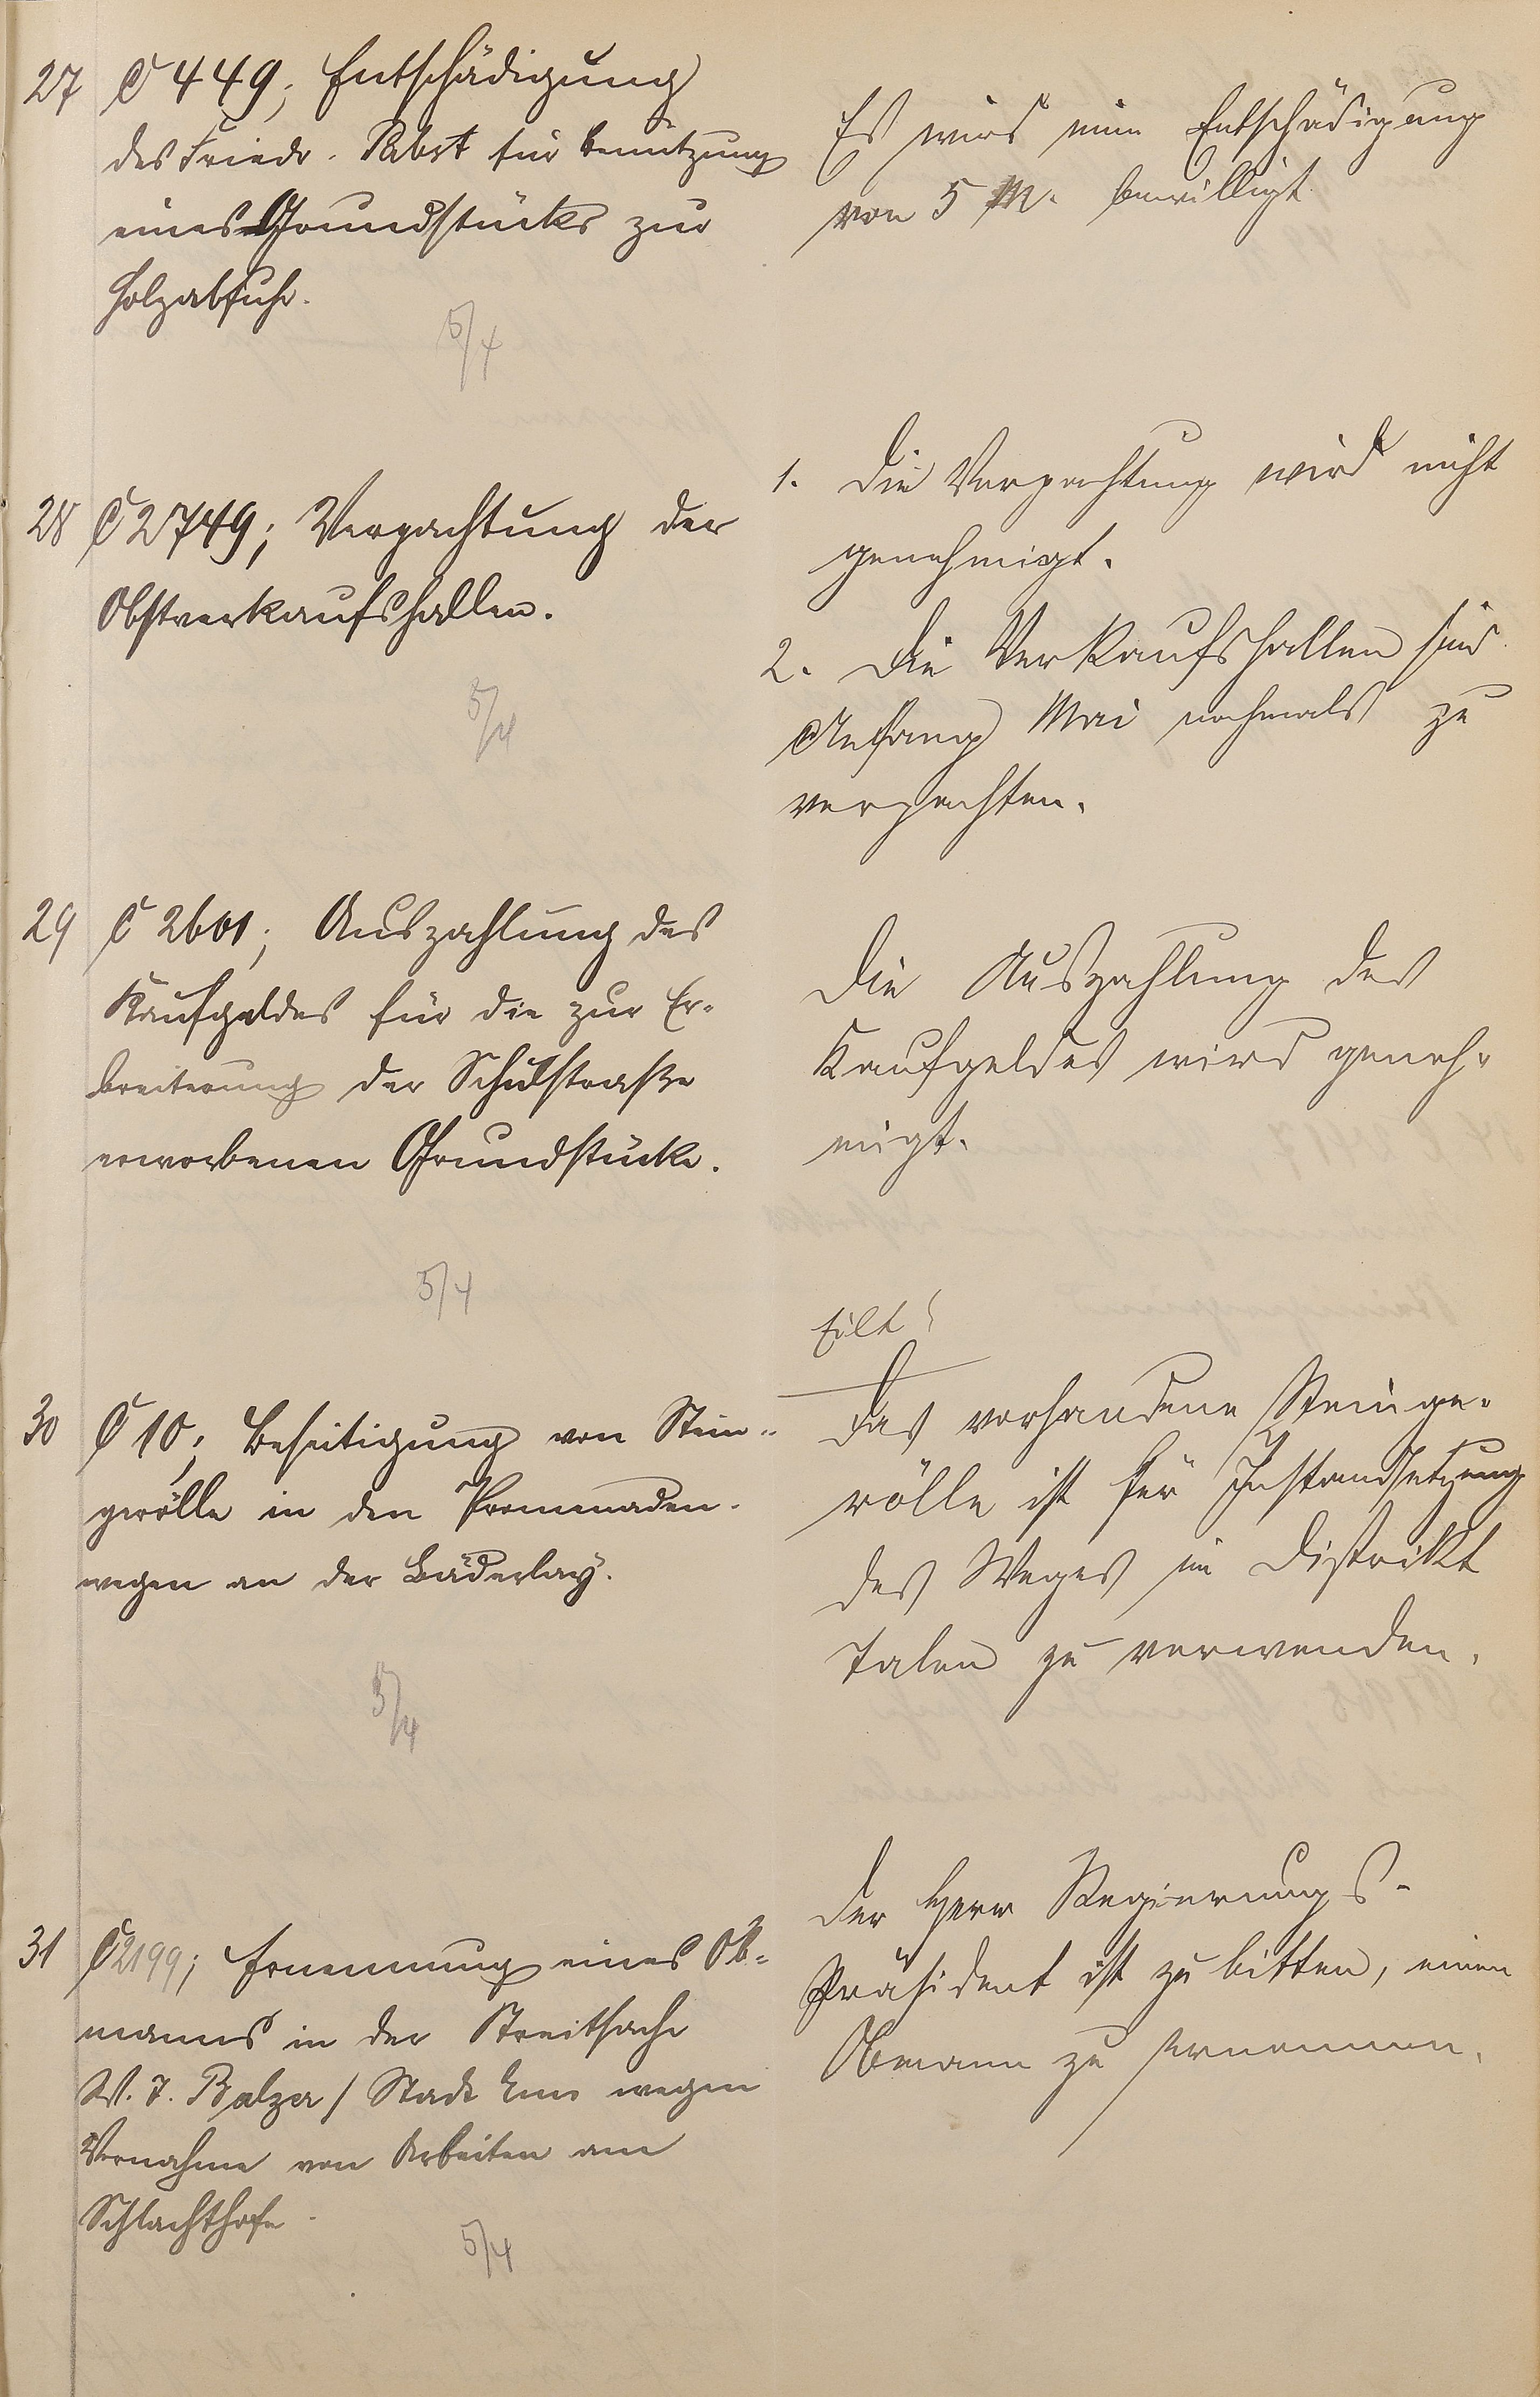 27 C 449; Entschädigung
des Friedr. Pabst für Benützung
eines Grundstücks zur
Holzabfuhr.
5/4
Es wird eine Entschädigung
von 5 M. bewilligt
28 C 2749; Verpachtung der
Obstverkaufshallen.
5/4
1. Die Verpachtung wird nicht
genehmigt.
2. Die Verkaufshallen sind
Anfang Mai nochmals zu
verpachten.
29 C 2601; Auszahlung des
Kaufgeldes für die zur Er-
breiterung der Schulstraße
erworbenen Grundstücke.
5/4
Die Auszahlung des
Kaufgeldes wird geneh-
migt.
30 C 10; Beseitigung von Stein-
gerölle in den Promenaden-
wegen an der Bäderlay.
5/4
Eilt!
Das vorhandene Steinge-
rölle ist für Instandsetzung
des Weges im Distrikt
Talen zu verwenden.
31 C 2199; Ernennung eines Ob-
manns in der Streitsache
W. J. Balzer / Stadt Ems wegen
Vornahme von Arbeiten am
Schlachthofe.
5/4
Der Herr Regierungs-
Präsident ist zu bitten, einen
Obmann zu ernennen.